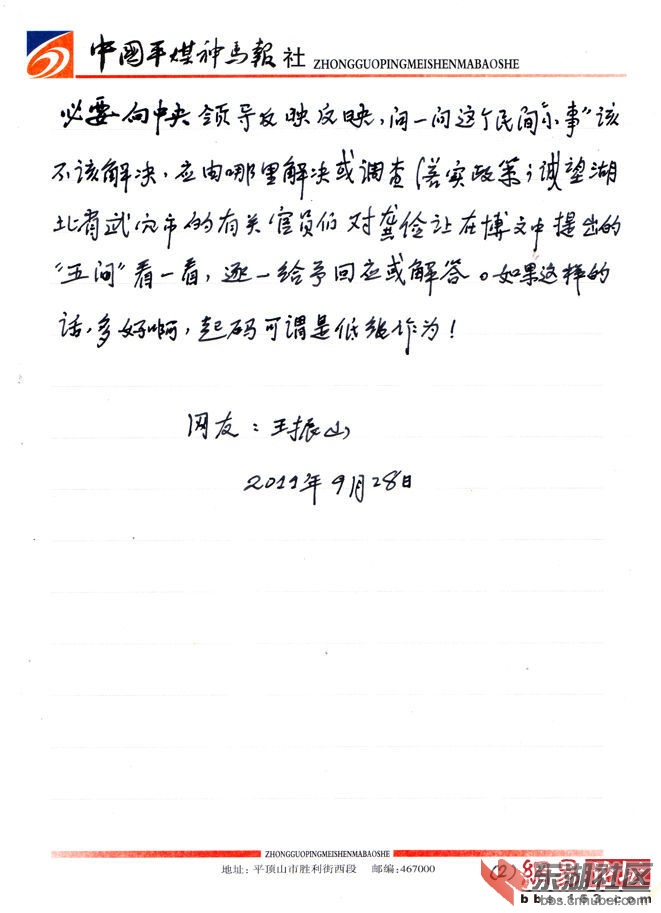 中國平煤神马報社 ZHONGGUOPINGMEISHENMABAOSHE
必要向中央领导反映反映,问一问这个民间“小事”该
不该解决,应由哪里解决或调查落实政策;诚望湖
北省武穴市的有关官员们对龚俭让在博文中提出的
“五问”看一看,逐一给予回应或解答。如果这样的
话,多好啊,起码可谓是低级作为!
网友:王振山
2011年9月28日
ZHONGGUOPINGMEISHENMABAOSHE
地址:平顶山市胜利街西段 邮编:467000
2
东湖社区
bbs.cnhubei.com